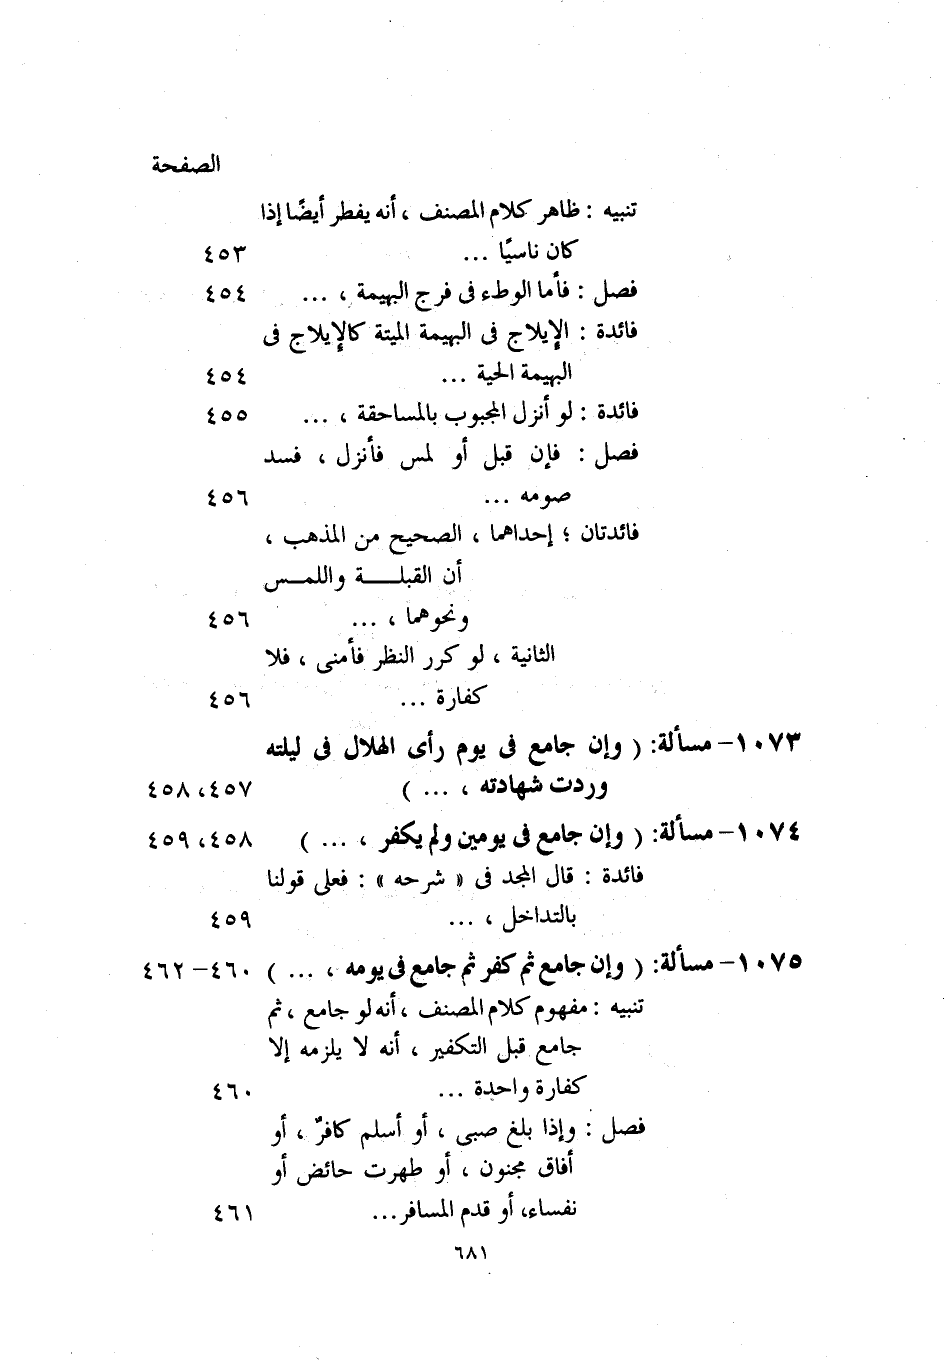 الصفحة
تنبيه : ظاهر كلام المصنف ، أنه يفطر أيضًا إذا
كان ناسيًا ... ٤٥٣
فصل : فأما الوطء فى فرج البهيمة ، ... ٤٥٤
فائدة : الإيلاج فى البهيمة الميتة كالإيلاج فى
البهيمة الحية ... ٤٥٤
فائدة : لو أنزل المجبوب بالمساحقة ، ... ٤٥٥
فصل : فإن قبل أو لمس فأنزل ، فسد
صومه ... ٤٥٦
فائدتان ؛ إحداهما ، الصحيح من المذهب ،
أن القبلـــــة واللمـــس
ونحوهما ، ... ٤٥٦
الثانية ، لو كرر النظر فأمنى ، فلا
كفارة ... ٤٥٦
١٠٧٣- مسألة: ( وإن جامع فى يوم رأى الهلال فى ليلته
وردت شهادته ، ... ) ٤٥٧، ٤٥٨
١٠٧٤- مسألة: ( وإن جامع فى يومين ولم يكفر ، ... ) ٤٥٨، ٤٥٩
فائدة : قال المجد فى « شرحه » : فعلى قولنا
بالتداخل ، ... ٤٥٩
١٠٧٥- مسألة: ( وإن جامع ثم كفر ثم جامع فى يومه ، ... ) ٤٦٠- ٤٦٢
تنبيه : مفهوم كلام المصنف ، أنه لو جامع ، ثم
جامع قبل التكفير ، أنه لا يلزمه إلا
كفارة واحدة ... ٤٦٠
فصل : وإذا بلغ صبى ، أو أسلم كافرٌ ، أو
أفاق مجنون ، أو طهرت حائض أو
نفساء، أو قدم المسافر... ٤٦١
٦٨١